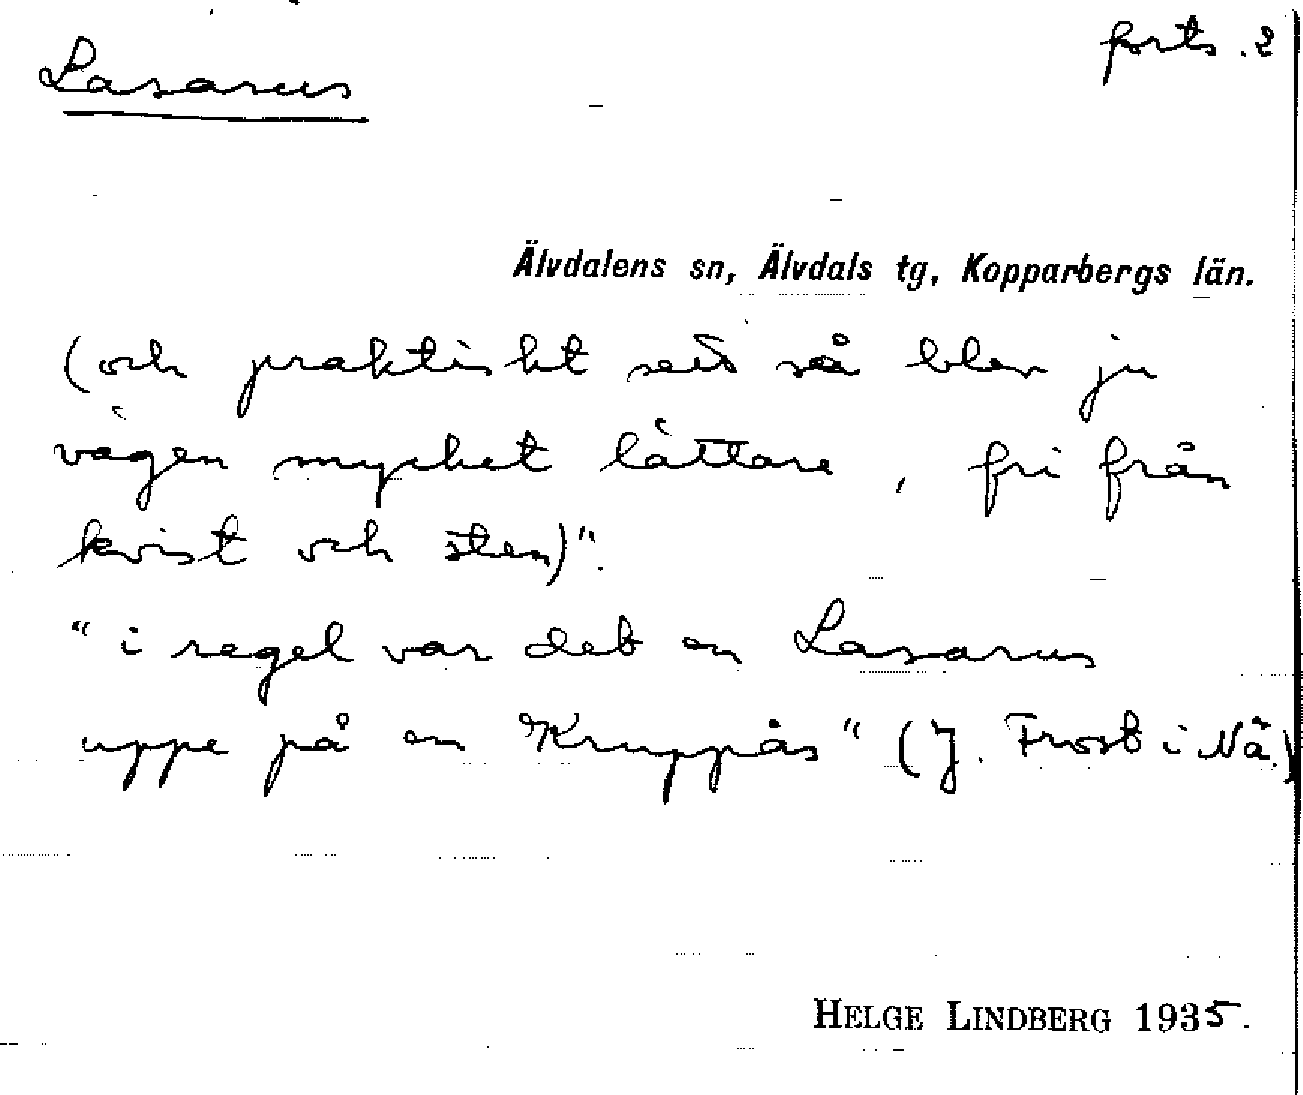 Lasarus
forts. 2
Älvdalens sn, Älvdals tg, Kopparbergs län.
(och praktiskt sett så blev ju
vägen mycket lättare, fri från
kvist och sten)".
"i regel var det en Lasarus
uppe på en Kruppås" (J. Frost i Nä.)
HELGE LINDBERG 1935.